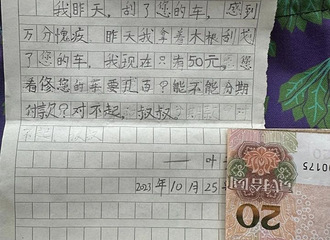 我昨天，刮了您的车，感到
万分愧疚 昨天我拿着木棍刮花
了您的车，我现在只有50元，您
看修您的车要几百？能不能分期
付款？对不起，叔叔
一叶
2023年10月25
00175
贰拾圆
20